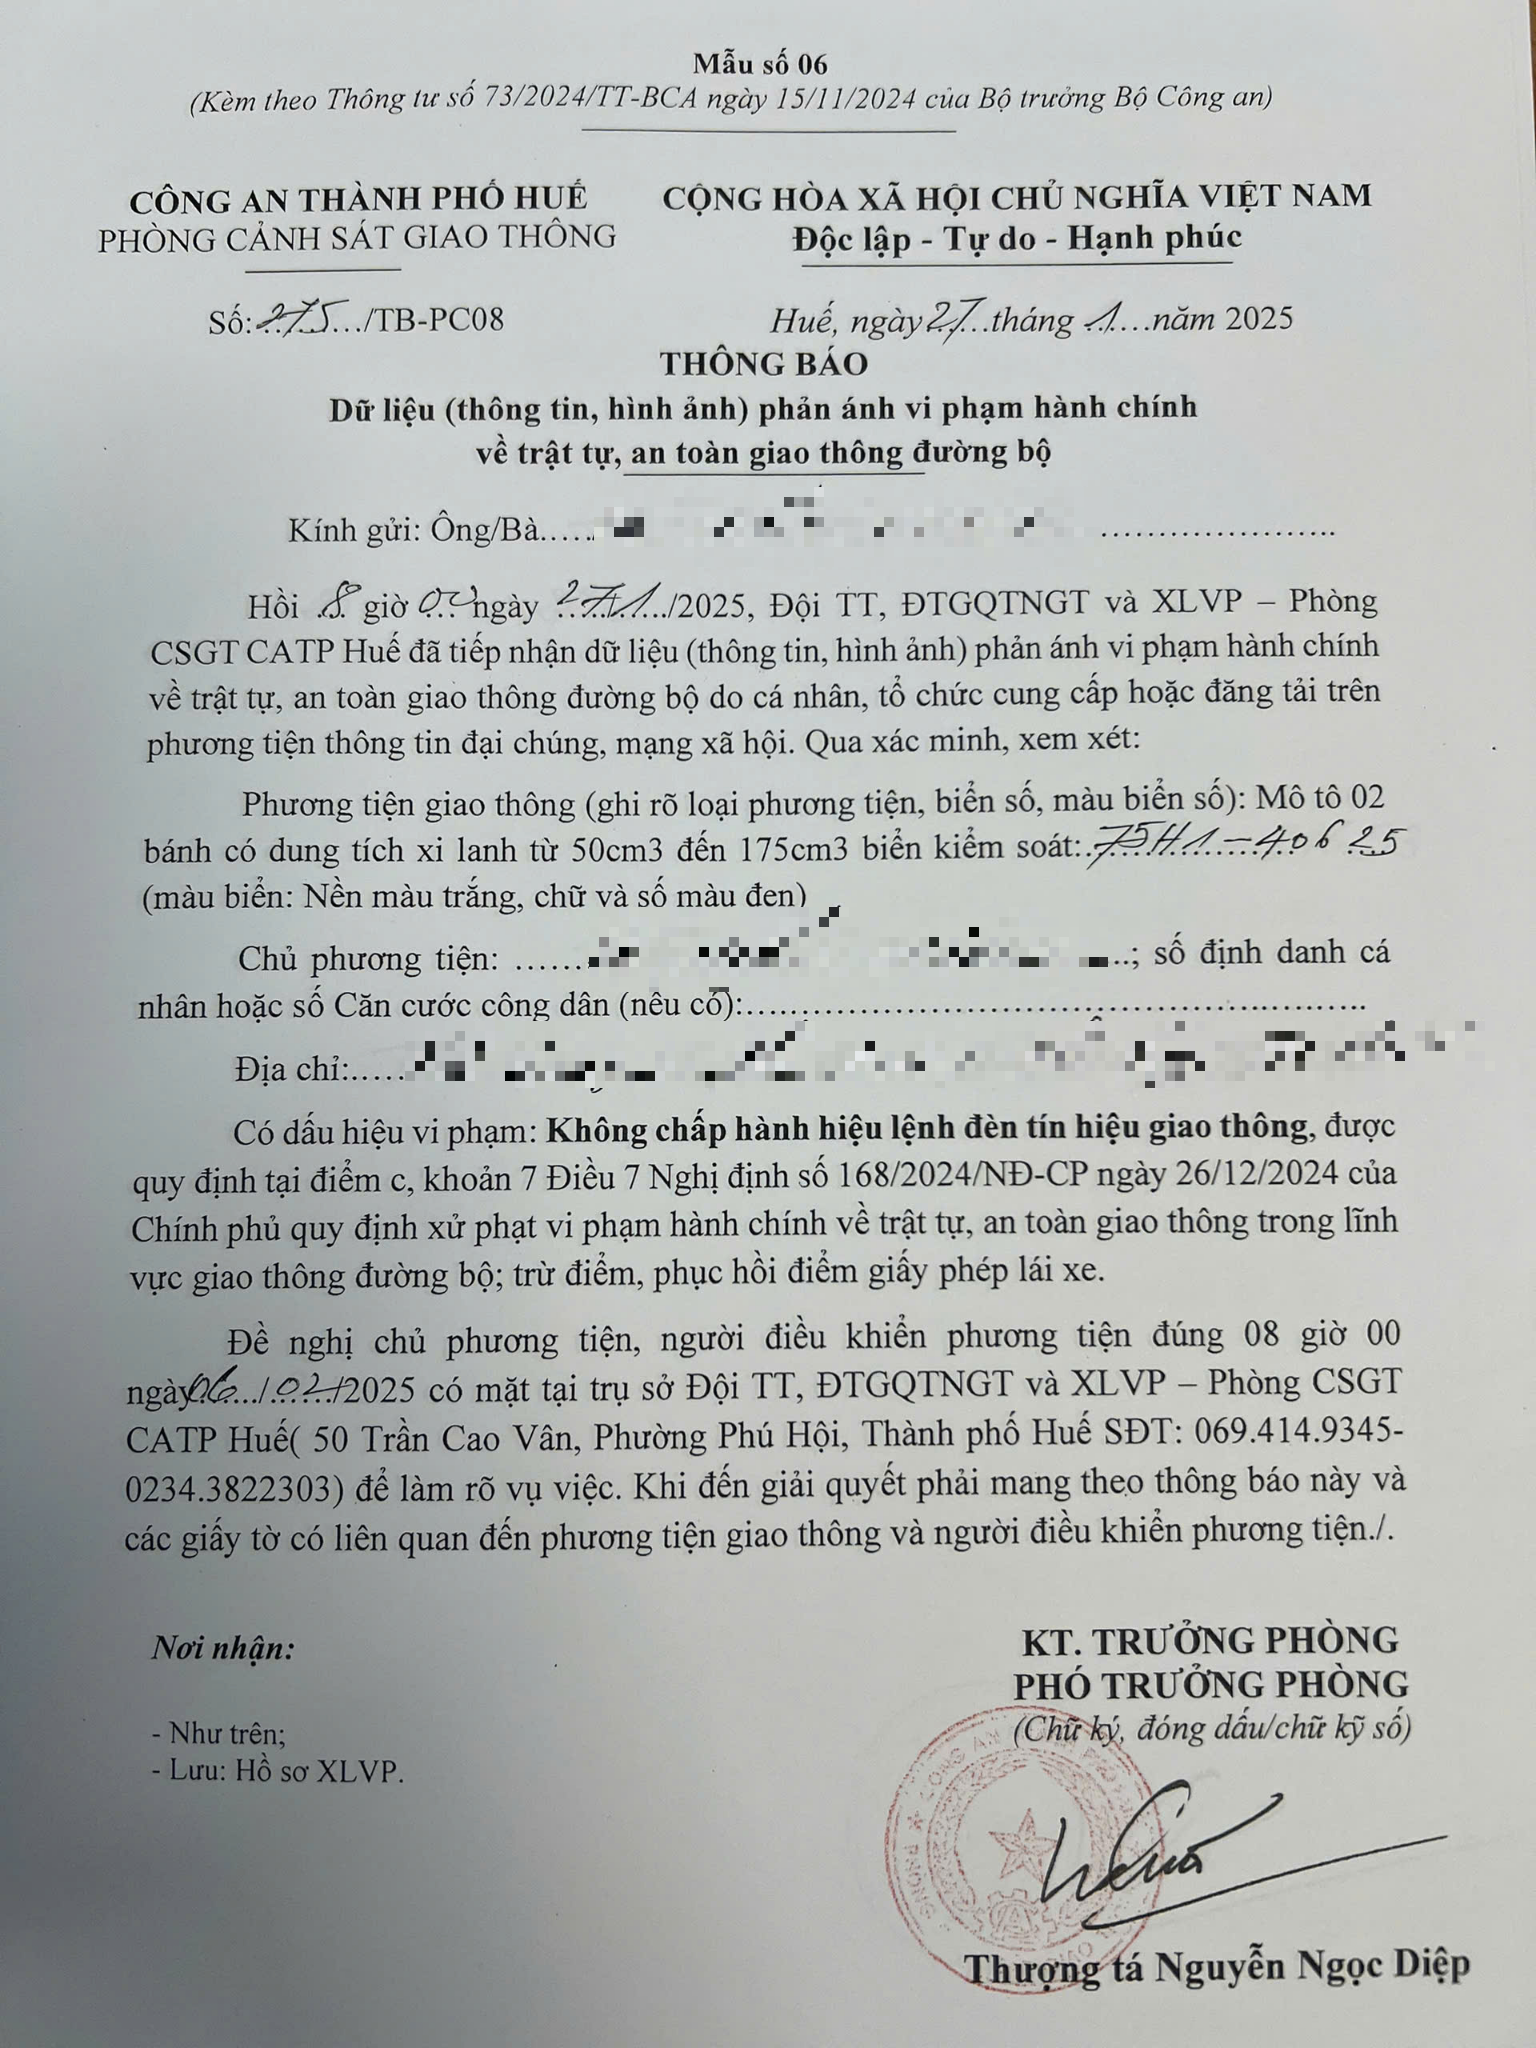 Mẫu số 06
(Kèm theo Thông tư số 73/2024/TT-BCA ngày 15/11/2024 của Bộ trưởng Bộ Công an)
CÔNG AN THÀNH PHỐ HUẾ
PHÒNG CẢNH SÁT GIAO THÔNG
CỘNG HÒA XÃ HỘI CHỦ NGHĨA VIỆT NAM
Độc lập - Tự do - Hạnh phúc
Số: 275.../TB-PC08
Huế, ngày 27...tháng 1....năm 2025
THÔNG BÁO
Dữ liệu (thông tin, hình ảnh) phản ánh vi phạm hành chính
về trật tự, an toàn giao thông đường bộ
Kính gửi: Ông/Bà...... ......................
Hồi 8 giờ 00 ngày 27/1/2025, Đội TT, ĐTGQTNGT và XLVP – Phòng
CSGT CATP Huế đã tiếp nhận dữ liệu (thông tin, hình ảnh) phản ánh vi phạm hành chính
về trật tự, an toàn giao thông đường bộ do cá nhân, tổ chức cung cấp hoặc đăng tải trên
phương tiện thông tin đại chúng, mạng xã hội. Qua xác minh, xem xét:
Phương tiện giao thông (ghi rõ loại phương tiện, biển số, màu biển số): Mô tô 02
bánh có dung tích xi lanh từ 50cm3 đến 175cm3 biển kiểm soát: 75H1-40625
(màu biển: Nền màu trắng, chữ và số màu đen)
Chủ phương tiện: ...... ..; số định danh cá
nhân hoặc số Căn cước công dân (nêu có):..............................................................
Địa chỉ:.....
Có dấu hiệu vi phạm: Không chấp hành hiệu lệnh đèn tín hiệu giao thông, được
quy định tại điểm c, khoản 7 Điều 7 Nghị định số 168/2024/NĐ-CP ngày 26/12/2024 của
Chính phủ quy định xử phạt vi phạm hành chính về trật tự, an toàn giao thông trong lĩnh
vực giao thông đường bộ; trừ điểm, phục hồi điểm giấy phép lái xe.
Đề nghị chủ phương tiện, người điều khiển phương tiện đúng 08 giờ 00
ngày 06.../.02./2025 có mặt tại trụ sở Đội TT, ĐTGQTNGT và XLVP – Phòng CSGT
CATP Huế( 50 Trần Cao Vân, Phường Phú Hội, Thành phố Huế SĐT: 069.414.9345-
0234.3822303) để làm rõ vụ việc. Khi đến giải quyết phải mang theo thông báo này và
các giấy tờ có liên quan đến phương tiện giao thông và người điều khiển phương tiện./.
Nơi nhận:
- Như trên;
- Lưu: Hồ sơ XLVP.
KT. TRƯỞNG PHÒNG
PHÓ TRƯỞNG PHÒNG
(Chữ ký, đóng dấu/chữ kỹ số)
Thượng tá Nguyễn Ngọc Diệp